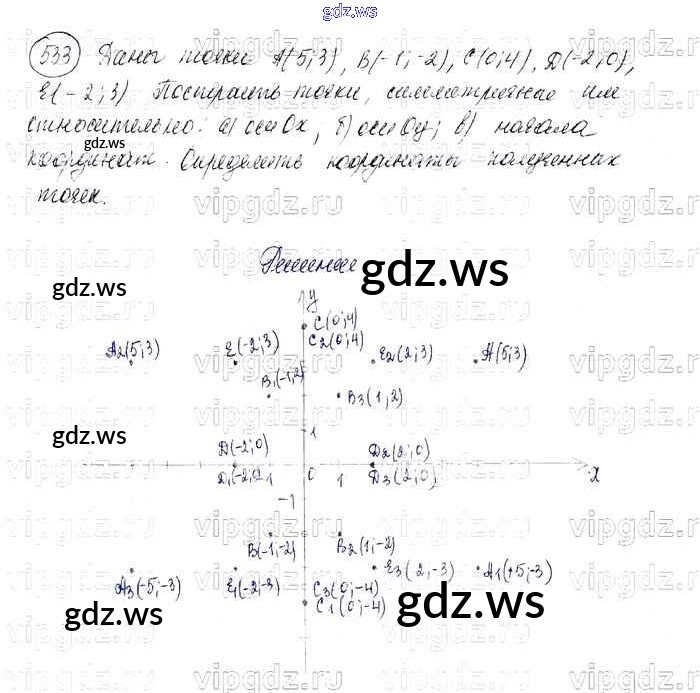 gdz.ws
533 Даны точки A(5;3), B(-1;-2), C(0;4), D(-2;0),
E(-2;3). Построить точки, симметричные им
относительно: а) оси Ox; б) оси Oy; в) начала
координат. Определить координаты полученных
точек.
gdz.ws
vipgdz.ru vipgdz.ru vipgdz.ru
Решение
gdz.ws
gdz.ws
y
C(0;4)
C2(0;4)
A2(5;3) E(-2;3) E2(2;3) A(5;3)
B1(-1;2) B3(1;2)
gdz.ws
gdz.ws
1
D(-2;0) D2(2;0)
0 1 x
D1(-2;0) -1 D3(2;0)
-1
B(-1;-2) B2(1;-2)
A3(-5;-3) E1(-2;-3) C3(0;-4) E3(2;-3) A1(+5;-3)
C1(0;-4)
gdz.ws
gdz.ws